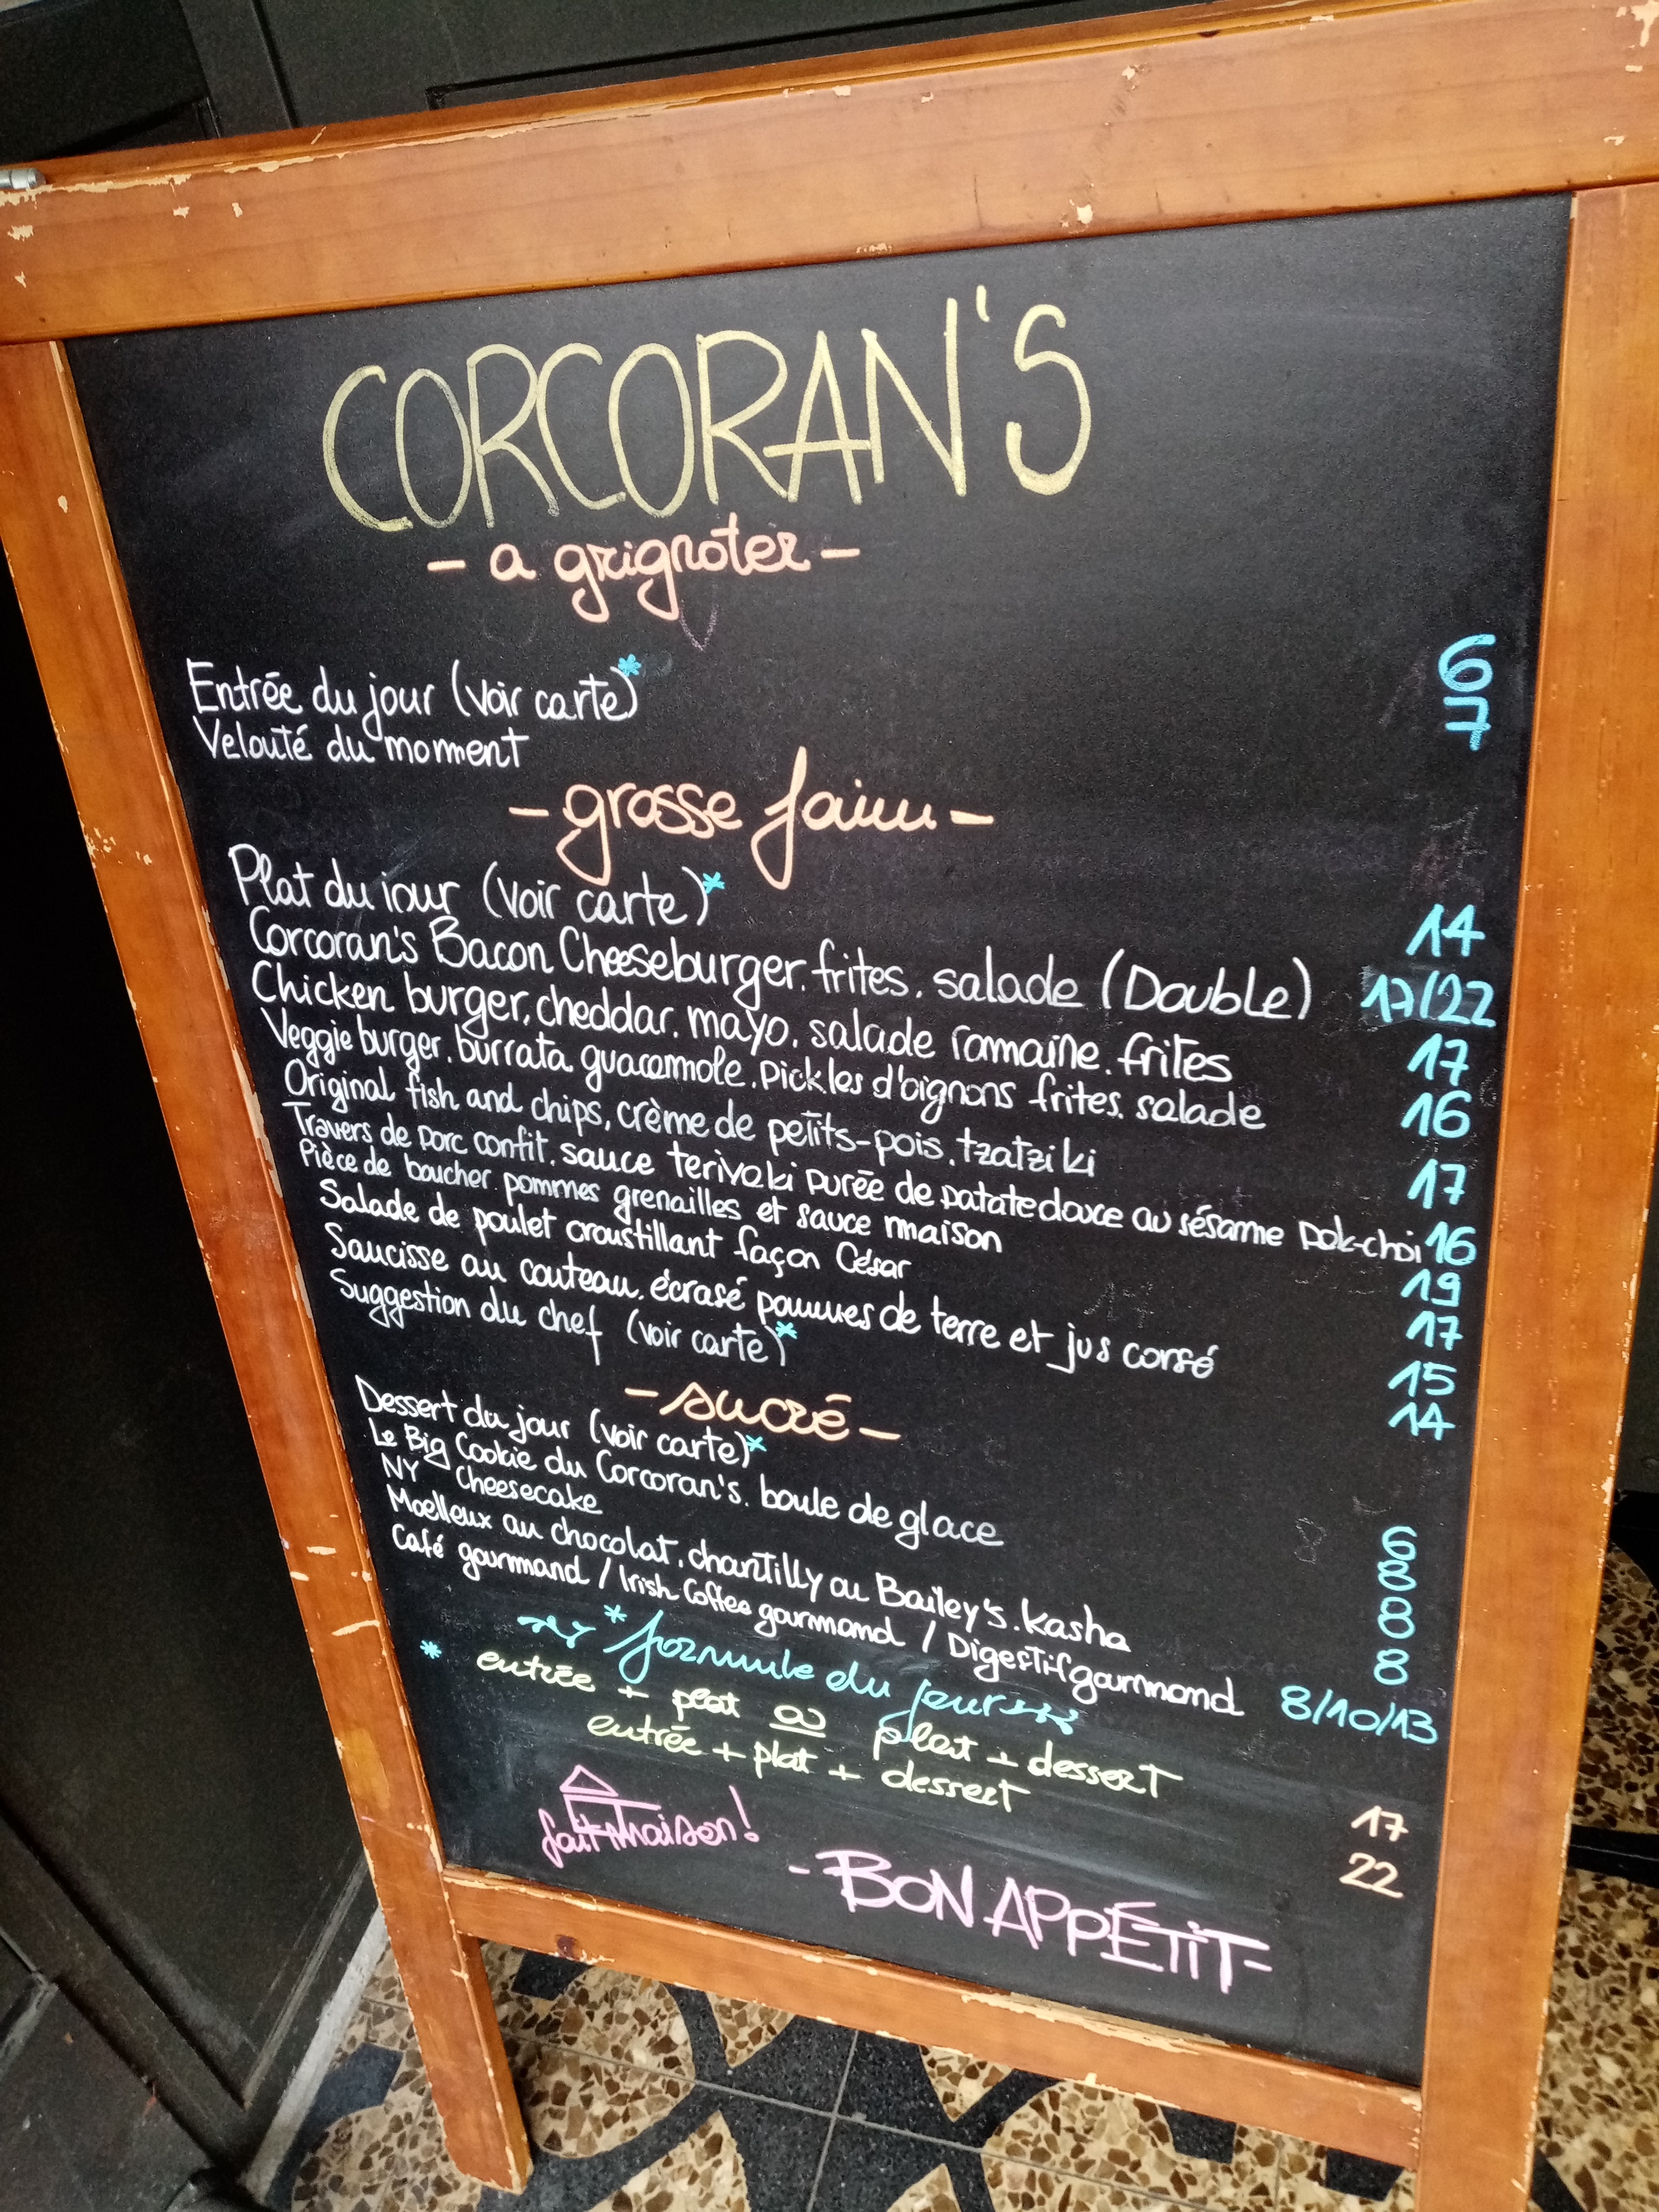 CORCORAN'S
- a grignoter -
Entrée du jour (voir carte)* 6
Velouté du moment 7
- grosse faim -
Plat du jour (voir carte)* 14
Corcoran's Bacon Cheeseburger. frites. salade (Double) 17/22
Chicken burger, cheddar. mayo. salade romaine. frites 17
Veggie burger. burrata. guacamole. pickles d'oignons frites. salade 16
Original fish and chips, crème de petits-pois. tzatziki 17
Travers de porc confit. sauce teriyaki purée de patate douce au sésame pok-choi 16
Pièce de boucher pommes grenailles et sauce maison 19
Salade de poulet croustillant façon César 17
Saucisse au couteau. écrasé pommes de terre et jus corsé 15
Suggestion du chef (voir carte)* 14
- sucré -
Dessert du jour (voir carte)* 6
Le Big Cookie du Corcoran's. boule de glace 8
NY Cheesecake 8
Moelleux au chocolat. chantilly au Bailey's. Kasha 8
Café gourmand / Irish Coffee gourmand / Digestif gourmand 8/10/13
* formule du jour
* entrée + plat ou plat + dessert 17
entrée + plat + dessert 22
fait maison!
- BON APPÉTIT -